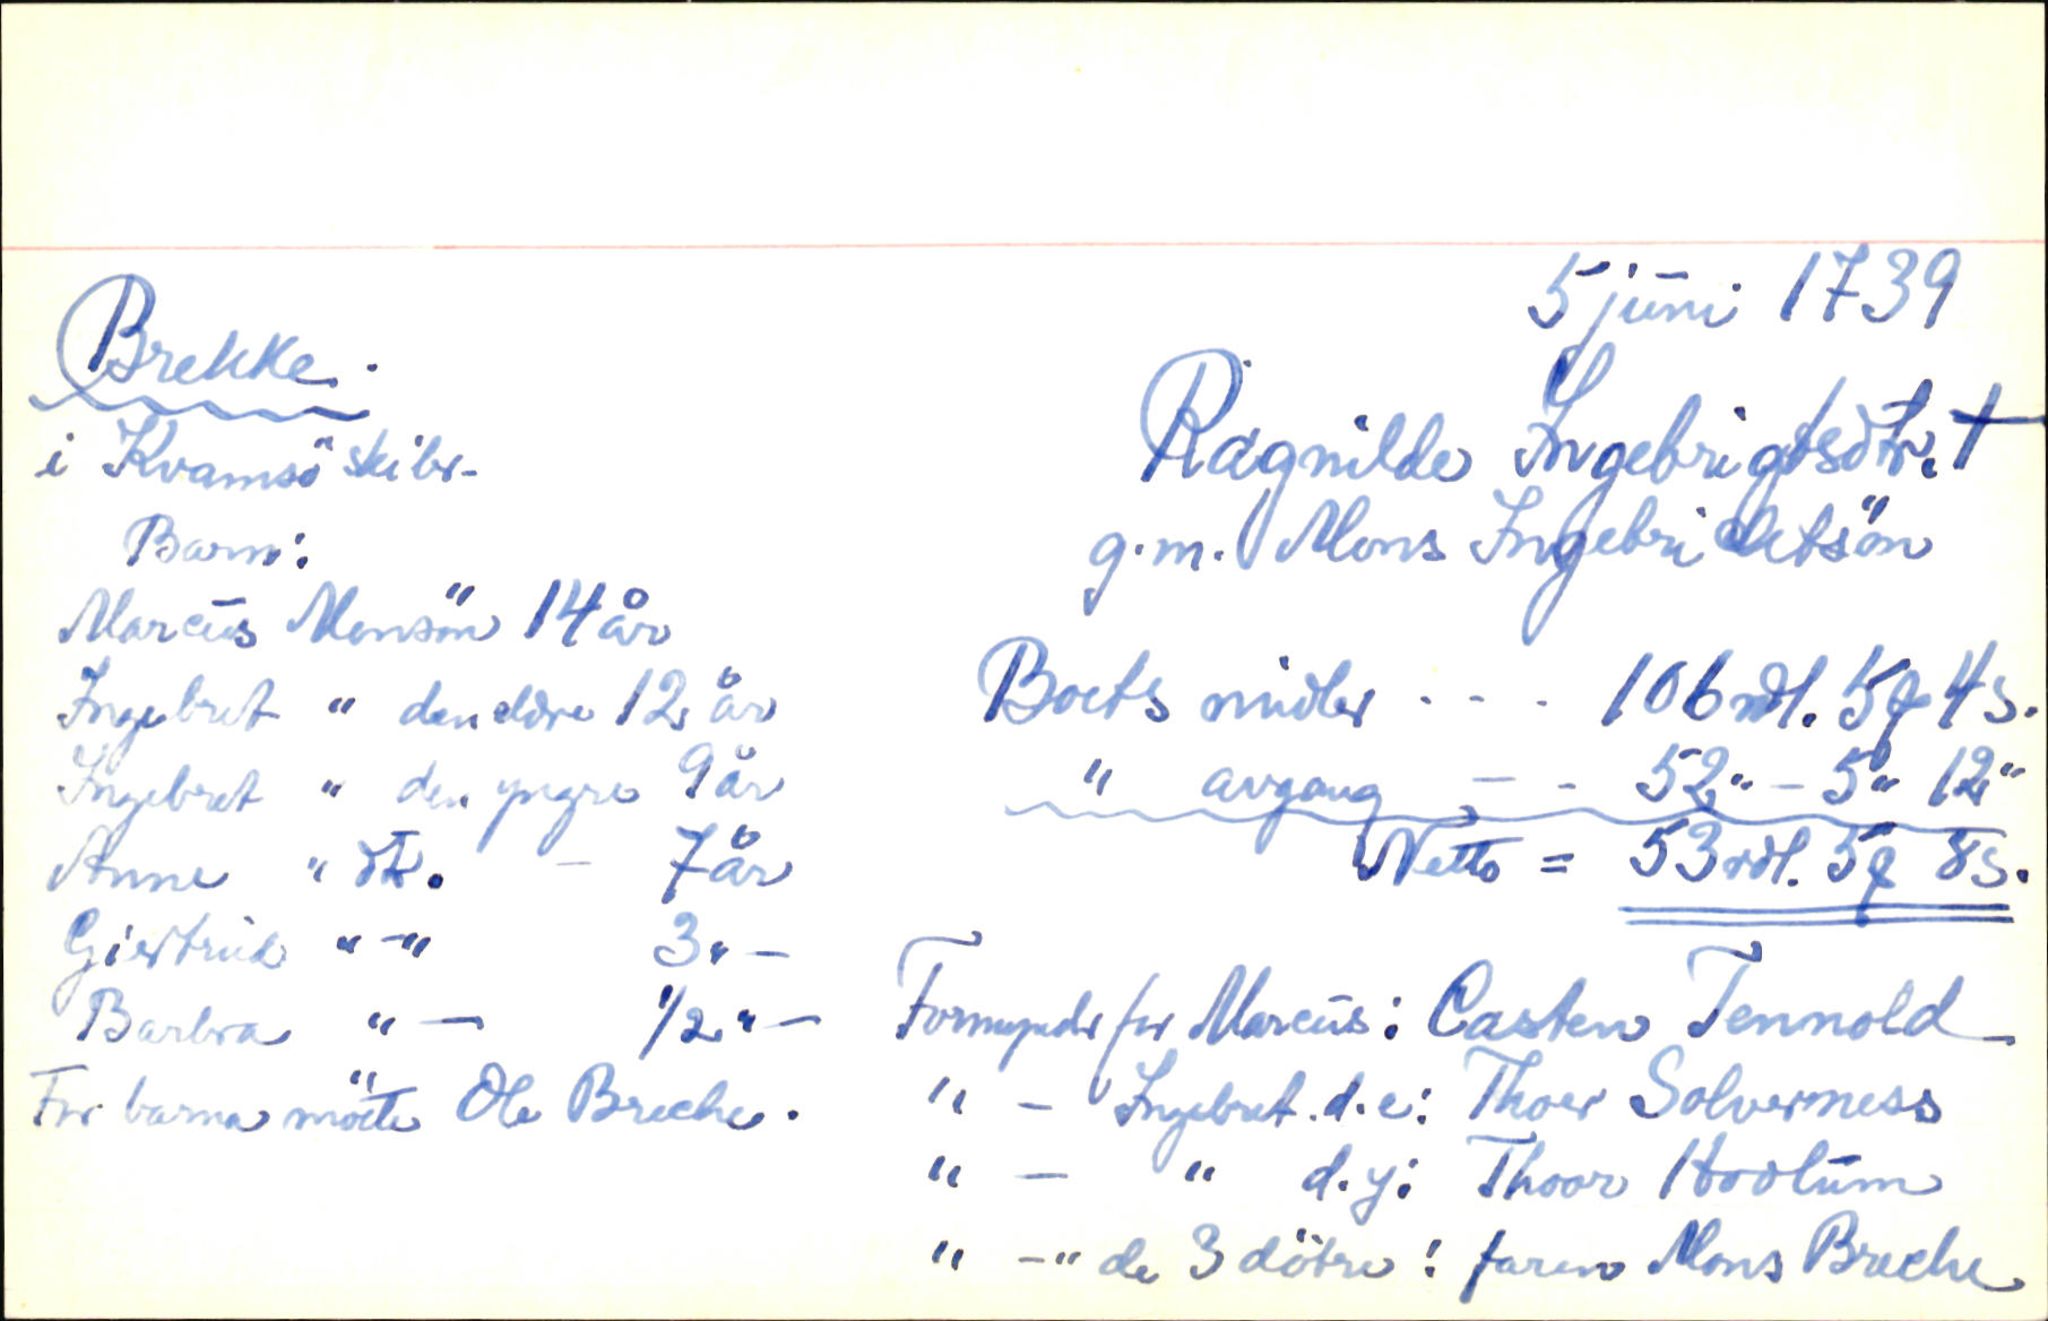 5 juni 1739
Brekke.
i Kvamsö skibr-
Ragnilde Ingebrigtsdtr. †
g.m. Mons Ingebrichtsön
Barn:
Marcus Monsön 14 år
Ingebret " den eldre 12 år
Ingebret " den yngre 9 år
Anne " dtr. - 7 år
Giertrud " -" 3 " -
Barbra " - 1/2 " -
For barna mötte Ole Breche.
Boets midler - - - 106 rdl. 5 q 4 s.
" avgang - - 52 " - 5 " 12 "
Netto = 53 rdl. 5 q 8 s.
Formynder for Marcus: Casten Tennold
" - Ingebret d.e: Thoer Solverness
" - " d.y: Thoor Hovlum
" -" de 3 dötre: faren Mons Breche